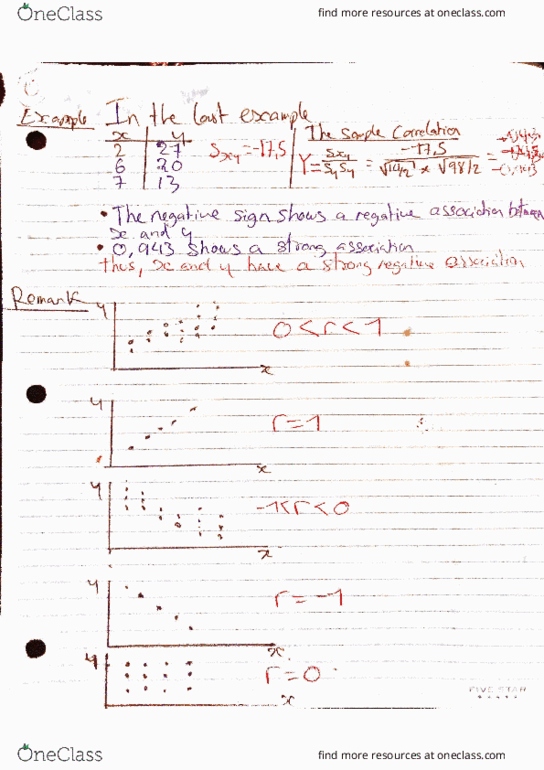 OneClass
find more resources at oneclass.com
Example In the last example
x y
2 27
6 20
7 13
Sxy = -17,5
The Sample Correlation
r = Sxy / Sx Sy = -17,5 / √14/2 x √98/2 =
• The negative sign shows a negative association between
x and y
• 0,943 shows a strong association
thus, x and y have a strong negative association
Remark
y
0 < r < 1
x
y
r = 1
x
y
-1 < r < 0
x
y
r = -1
x
y
r = 0
x
FIVE STAR
OneClass
find more resources at oneclass.com